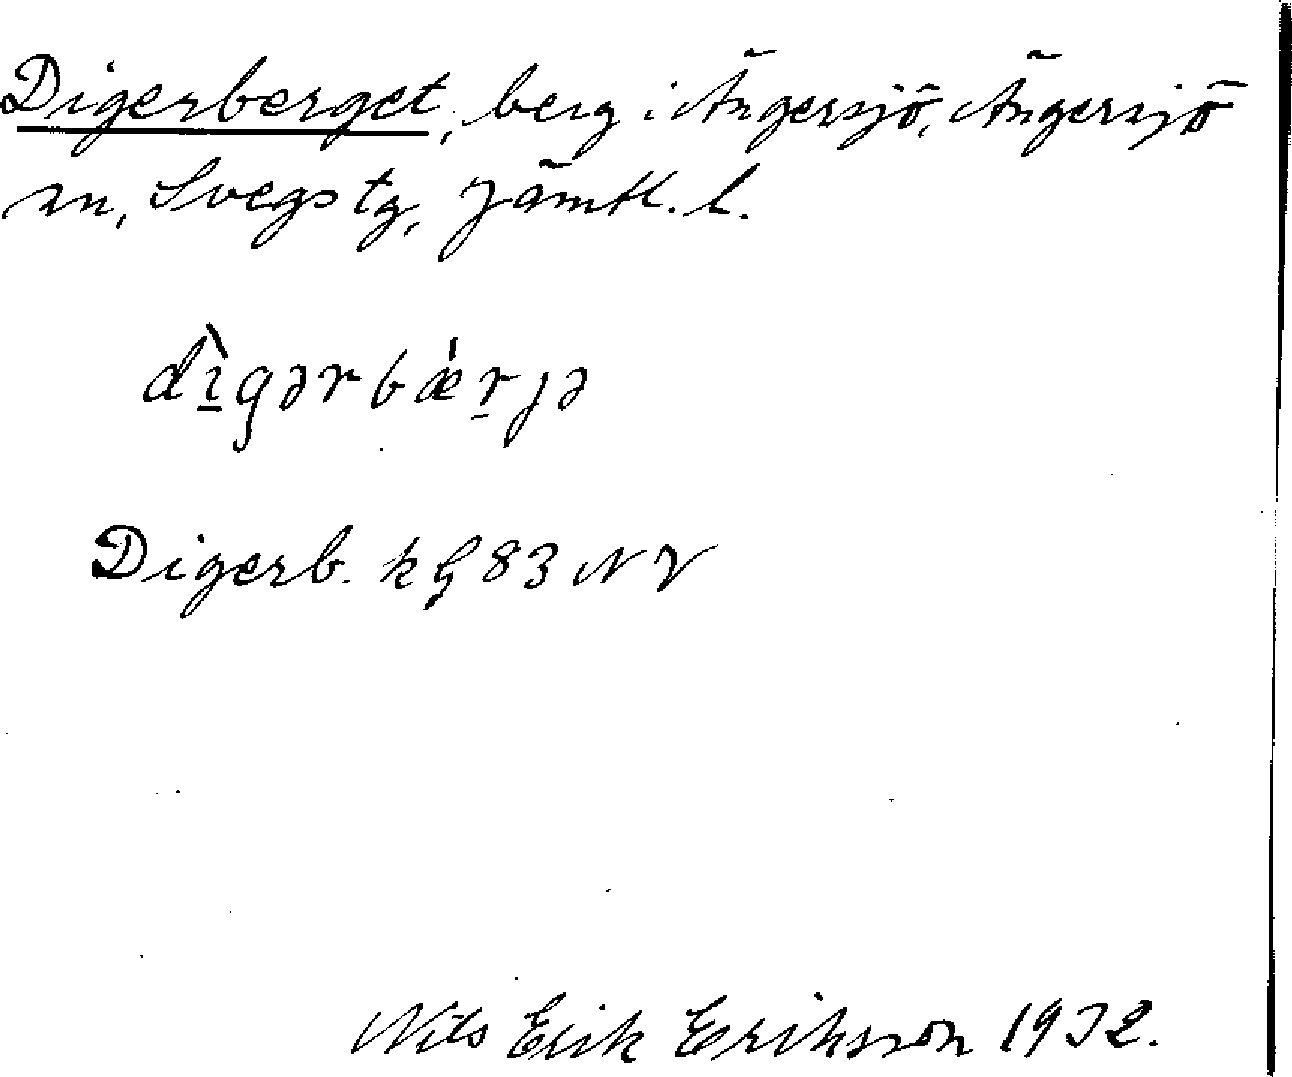 Digerberget, berg i Ängersjö, Ängersjö
sn, Svegs tg, Jämtl. l.
dı̱̀gərbǽr̠jə
Digerb. kG 83 NV
Nils Erik Eriksson 1932.